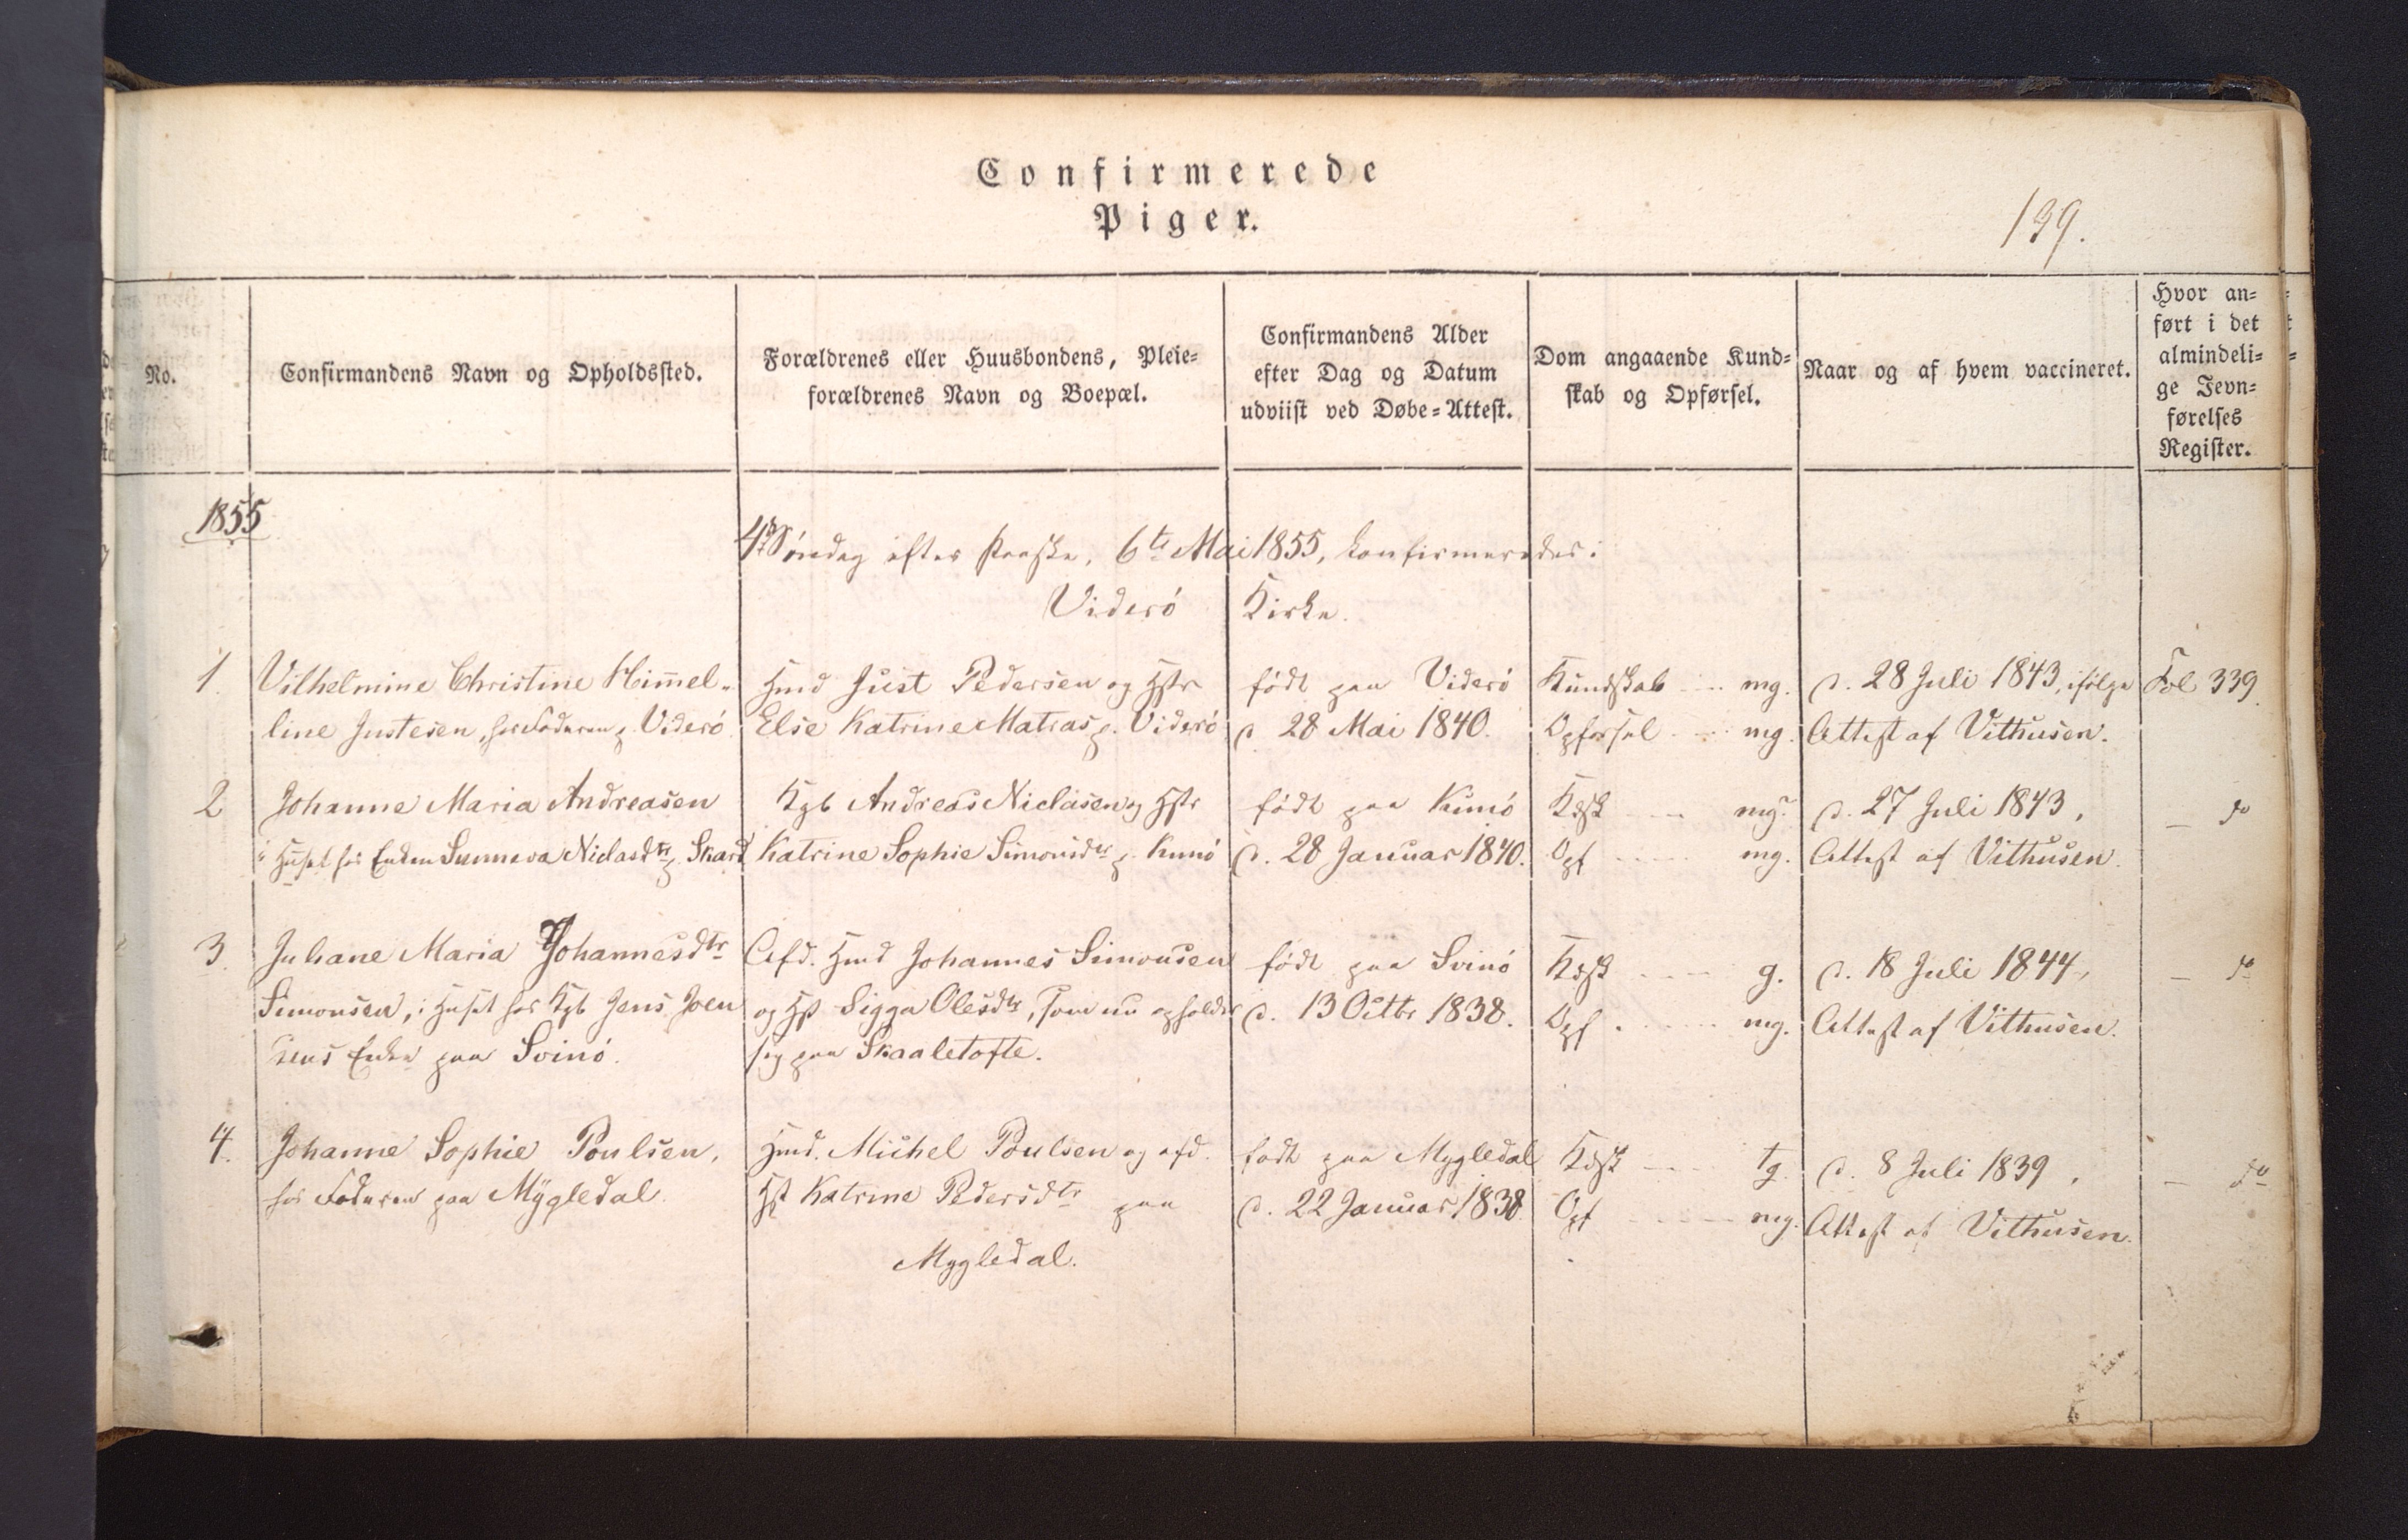 Confirmerede
Piger.
139.
No.
Confirmandens Navn og Opholdssted.
Forældrenes eller Huusbondens, Pleie-
forældrenes Navn og Boepæl.
Confirmandens Alder
efter Dag og Datum
udviist ved Døbe-Attest.
Dom angaaende Kund-
skab og Opførsel.
Naar og af hvem vaccineret.
Hvor an-
ført i det
almindeli-
ge Jevn-
førelses
Register.
1855
4de Søndag efter Paaske, 6te Mai 1855, confirmeredes i
Viderö Kirke.
1.
Vilhelmine Christine Himmel-
line Justesen, hos Faderen p. Viderö
Hmd Just Pedersen og Hstr
Else Katrine Matras p. Viderö
født paa Viderö
d. 28 Mai 1840.
Kundskab mg.
Opførsel mg.
d. 28 Juli 1843, ifølge
Attest af Vithusen.
Fol 339.
2
Johanne Maria Andreasen
i Huset hos Enken Sunneva Niclasdtr p. Skard
Kgb Andreas Niclasen og Hstr
Katrine Sophie Simonsdtr p. Kunö
født paa Kunö
d. 28 Januar 1840.
Kdsk mg?
Opf mg.
d. 27 Juli 1843,
Attest af Vithusen.
— do
3.
Juliane Maria Johannesdtr
Simonsen, i Huset hos Kgb Jens Joen
sens Enke paa Svinö.
Afd. Hmd Johannes Simonsen
og Hst Sigga Olesdtr, som nu opholder
sig paa Skaaletofte.
født paa Svinö
d. 13 Octbr 1838.
Kdsk g.
Opf. mg.
d. 18 Juli 1844,
Attest af Vithusen.
— do
4.
Johanne Sophie Poulsen,
hos Faderen paa Mygledal.
Hmd. Michel Poulsen og afd.
Hst Katrine Pedersdtr paa
Mygledal.
født paa Mygledal
d. 22 Januar 1838
Kdsk tg.
Opf mg.
d. 8 Juli 1839,
Attest af Vithusen.
— do